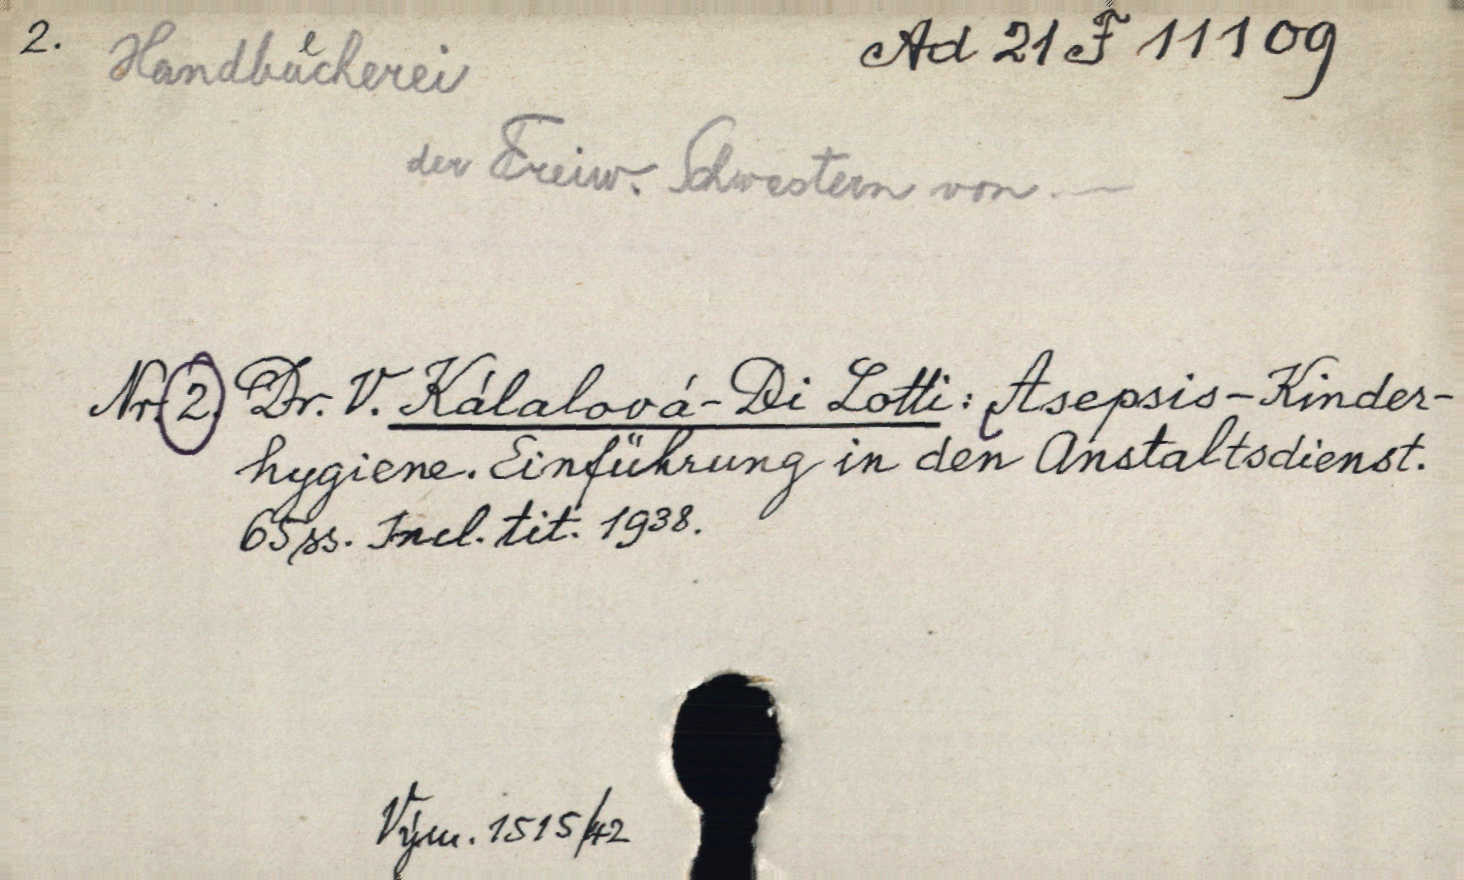 2. Handbůcherei Ad 21 F 11109
der Freiw. Schwestern von. —
Nr 2. Dr. V. Kálalová-Di Lotti: Asepsis-Kinder-
hygiene. Einführung in den Anstaltsdienst.
65 ss. Incl. tit. 1938.
Vým. 1515/42